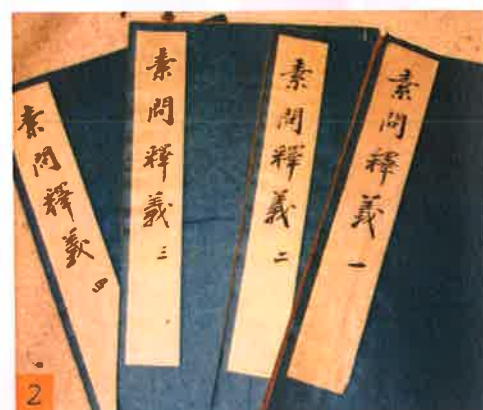 素問釋義 一
素問釋義 二
素問釋義 三
素問釋義 四
2